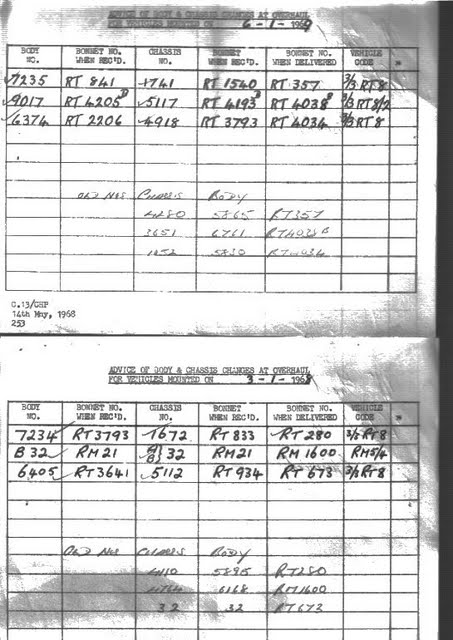 ADVICE OF BODY & CHASSIS CHANGES AT OVERHAUL
FOR VEHICLES MOUNTED ON 6-1-1969
BODY NO. BONNET NO. WHEN REC'D. CHASSIS NO. BONNET WHEN REC'D. BONNET NO. WHEN DELIVERED VEHICLE CODE
7235 RT 841 1741 RT 1540 RT 357 3/3 RT8
9017 RT 4205 5117 RT 4193 RT 4038 3/3 RT8/2
6374 RT 2206 4918 RT 3793 RT 4034 3/3 RT8
OLD NOS CHASSIS BODY
4280 5865 RT357
3651 6761 RT4038
1852 5830 RT4034
C.13/GHP
14th May, 1968
253
ADVICE OF BODY & CHASSIS CHANGES AT OVERHAUL
FOR VEHICLES MOUNTED ON 3-1-196
BODY NO. BONNET NO. WHEN REC'D. CHASSIS NO. BONNET WHEN REC'D. BONNET NO. WHEN DELIVERED VEHICLE CODE
7234 RT3793 1672 RT 833 RT 280 3/3 RT8
B 32 RM21 32 RM21 RM 1600 RM5/4
6405 RT3641 5112 RT 934 RT 673 3/3 RT8
OLD NOS CHASSIS BODY
4110 5895 RT280
6168 RM1600
32 32 RT673